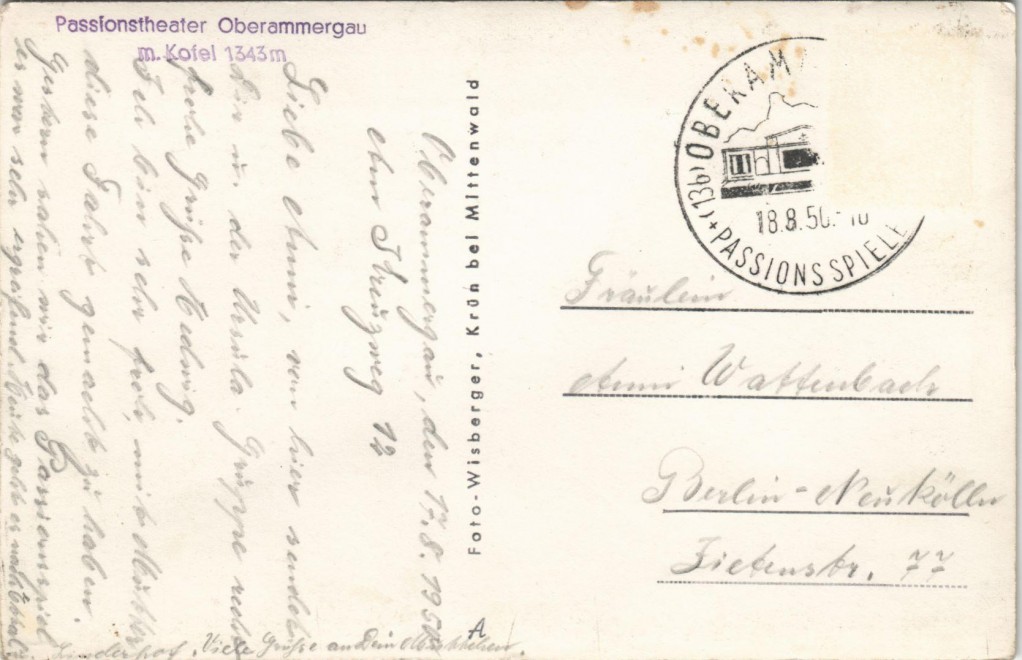 Passionstheater Oberammergau
m. Kofel 1343m
Oberammergau, den 17. 8. 1950
Am Kreugweg 12
Liebe Anni, von hier sendet
Dir u. der Ursula Grüppe recht
frohe Grüße Hedwig.
Ich bin sehr froh, mit Mutter
diese Fahrt gemacht zu haben.
Gestern sahen wir das Passionsspiel
es war sehr ergreifend. Heute geht es nach Ettal u.
Linderhof. Viele Grüße an Dein Muttchen.
Foto-Wisberger, Krün bei Mittenwald
A
(13b) OBERAM
18.8.50.-10
+ PASSIONSSPIELE
Fräulein
Anni Wattenbach
Berlin-Neukölln
Zietenstr. 77